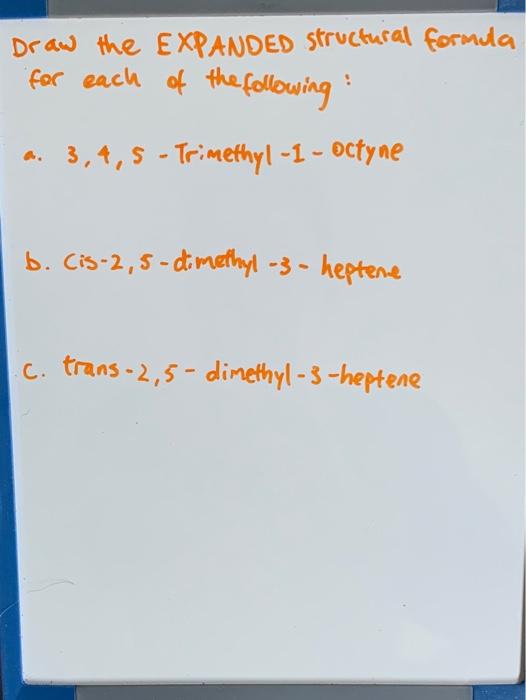 Draw the EXPANDED structural formula
for each of the following :
a. 3,4,5 - Trimethyl -1 - octyne
b. Cis-2,5-dimethyl -3- heptene
c. trans-2,5- dimethyl-3-heptene